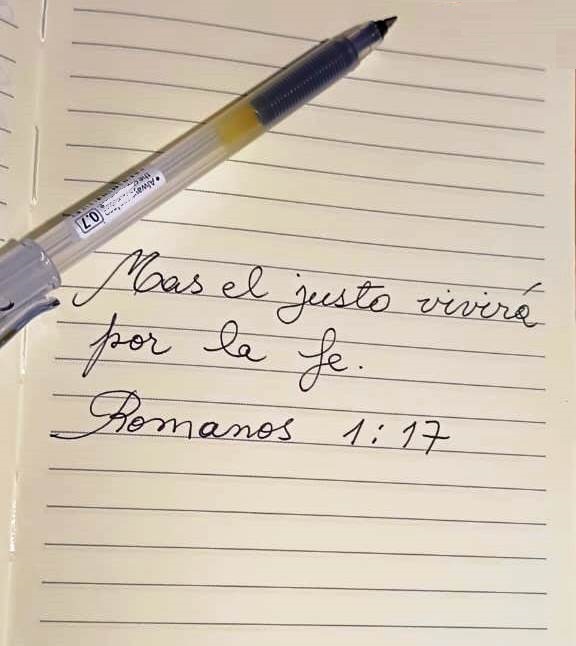 0.7
Mas el justo vivirá
por la fe.
Romanos 1:17